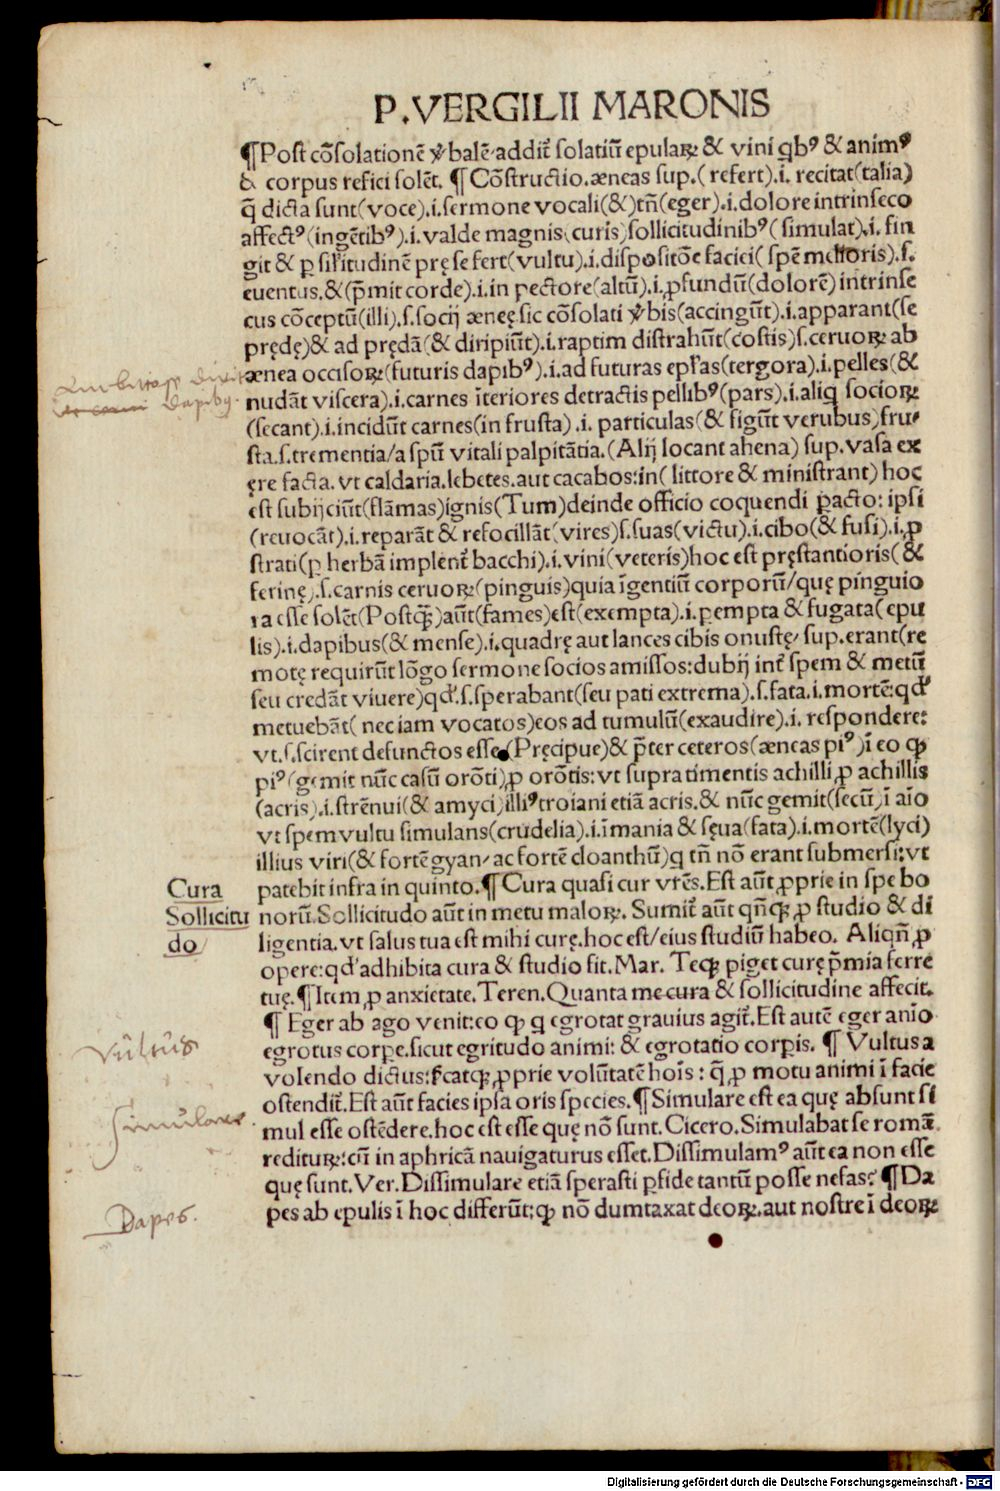 P.VERGILII MARONIS
¶Post cōsolationē v̄balē addit̄ solatiū epulaꝝ & vini qb⁹ & anim⁹
& corpus refici solēt. ¶Cōstructio.æneas sup.(refert).i. recitat(talia)
q̄ dicta sunt(voce).i.sermone vocali(&)tn̄(eger).i.dolore intrinseco
affect⁹(ingētib⁹).i.valde magnis(curis)sollicitudinib⁹(simulat).i.fin
git & ꝑ sil̄itudinē pręsefert(vultu).i.dispositōe faciei(spē melioris).s.
euentus.&(p̄mit corde).i.in pectore(altū).i.ꝓfundū(dolorē)intrinse
cus cōceptū(illi).s.socij æneę sic cōsolati v̄bis(accingūt).i.apparant(se
prędę)& ad prędā(& diripiūt).i.raptim distrahūt(costis)s.ceruoꝝ ab
ænea occisoꝝ(futuris dapib⁹).i.ad futuras epl̄as(tergora).i.pelles(&
nudāt viscera).i.carnes īteriores detractis pellib⁹(pars).i.aliq socioꝝ
(secant).i.incidūt carnes(in frusta).i. particulas(& figūt verubus)fru
sta.s.trementia/a spū vitali palpitātia.(Alij locant ahena) sup.vasa ex
ęre facta. vt caldaria.lebetes.aut cacabos:in(littore & ministrant) hoc
est subijciūt(flāmas)ignis(Tum)deinde officio coquendi ꝑacto: ipsi
(reuocāt).i.reparāt & refocillāt(vires)s.suas(victu).i.cibo(& fusi).i.ꝓ
strati(ꝑ herbā implent̄ bacchi).i.vini(veteris)hoc est pręstantioris(&
ferinę).s.carnis ceruoꝝ(pinguis)quia īgentiū corporū/quę pinguio
ra esse solēt(Postꝙ̄)aūt(fames)est(exempta).i.ꝑempta & fugata(epu
lis).i.dapibus(& mense).i.quadrę aut lances cibis onustę/ sup.erant(re
motę requirūt lōgo sermone socios amissos:dubij int̄ spem & metū
seu credāt viuere)qđ.s.sperabant(seu pati extrema).s.fata.i.mortē:qđ
metuebāt(nec iam vocatos)eos ad tumulū(exaudire).i. respondere:
vt.s.scirent defunctos esse.(Pręcipue)& p̄ter ceteros(æneas pi⁹)ī eo ꝙ
pi⁹(gemit nūc casū orōti)ꝓ orōtis:vt supra timentis achilli ꝓ achillis
(acris).i.strēnui(& amyci)illi⁹troiani etiā acris.& nūc gemit(secū)ī aīo
vt spem vultu simulans(crudelia).i.īmania & sęua(fata).i.mortē(lyci)
illius viri(& fortē gyan/ ac fortē cloanthū)q tn̄ nō erant submersi:vt
patebit infra in quinto.¶Cura quasi cur vrēs.Est aūt ꝓprie in spe bo
norū.Sollicitudo aūt in metu maloꝝ. Sumit̄ aūt qn̄qꝫ ꝓ studio & di
ligentia.vt salus tua est mihi curę.hoc est/eius studiū habeo. Aliqn̄ ꝓ
opere:qđ adhibita cura & studio fit.Mar. Teqꝫ piget curę p̄mia ferre
tuę.¶Item ꝓ anxietate.Teren.Quanta me cura & sollicitudine affecit.
¶ Eger ab ago venit:eo ꝙ q egrotat grauius agit̄.Est autē eger anīo
egrotus corꝑe.sicut egritudo animi: & egrotatio corꝑis. ¶ Vultus a
volendo dictus: ꝓprie volūtatē hoīs : q̄ ꝓ motu animi ī facie
ostendit̄.Est aūt facies ipsa oris species.¶Simulare est ea quę absunt si
mul esse ostēdere.hoc est esse quę nō sunt.Cicero.Simulabat se romā
redituꝝ:cū in aphricā nauigaturus esset.Dissimulam⁹ aūt ea non esse
quę sunt.Ver.Dissimulare etiā sperasti ꝑfide tantū posse nefas? ¶Da
pes ab epulis ī hoc differūt:ꝙ nō dumtaxat deoꝝ.aut nostre ī deoꝝ
Dapibꝫ.
Cura
Sollicitu
do
Vultus
Simulare.
Dapes.
Digitalisierung gefördert durch die Deutsche Forschungsgemeinschaft - DFG